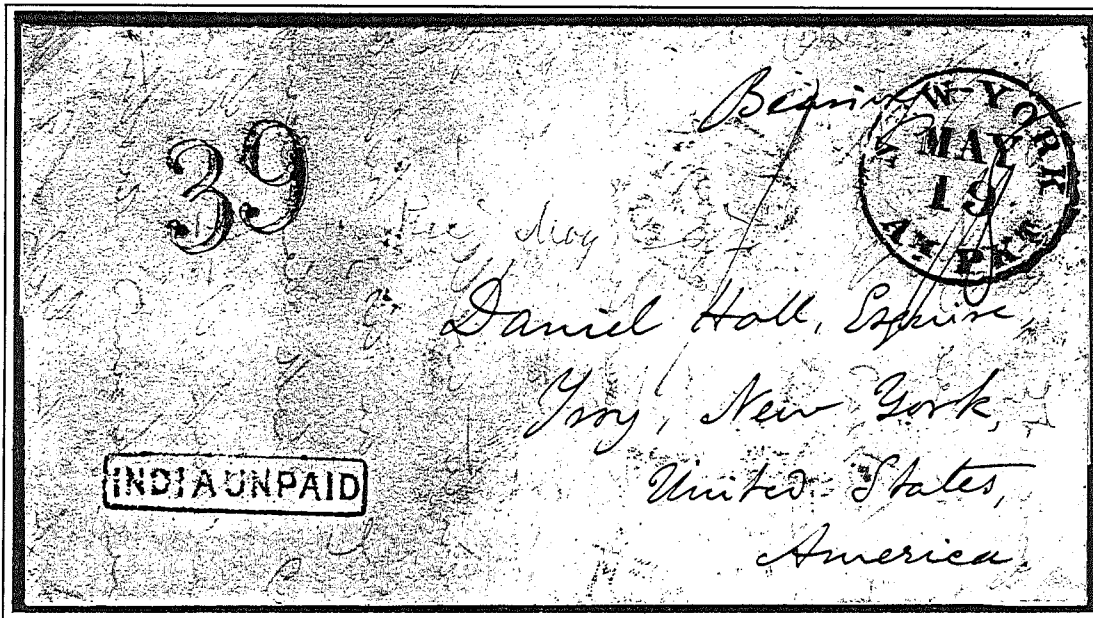 Bearing
39
NEW-YORK
MAY
19
AM. PKT.
Daniel Hall, Esquire,
Troy, New York,
United States,
America
INDIA UNPAID